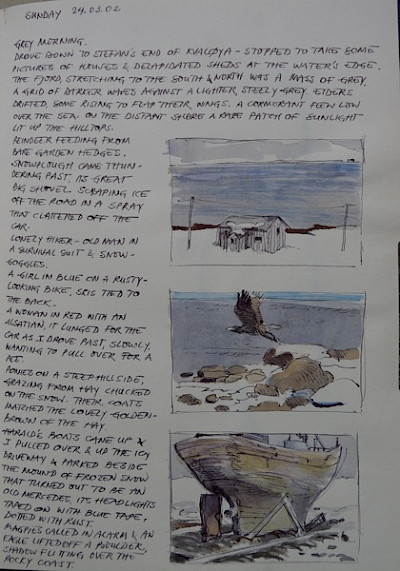 SUNDAY 24.03.02
GREY MORNING.
DROVE DOWN TO STEFAN'S END OF KVALØYA - STOPPED TO TAKE SOME
PICTURES OF HOUSES & DELAPIDATED SHEDS AT THE WATER'S EDGE.
THE FJORD, STRETCHING TO THE SOUTH & NORTH WAS A MASS OF GREY,
A GRID OF DARKER WAVES AGAINST A LIGHTER, STEELY-GREY. EIDERS
DRIFTED, SOME RISING TO FLAP THEIR WINGS. A CORMORANT FLEW LOW
OVER THE SEA. ON THE DISTANT SHORE A RARE PATCH OF SUNLIGHT
LIT UP THE HILLTOPS.
REINDEER FEEDING FROM
BARE GARDEN HEDGES.
SNOWPLOUGH CAME THUN-
DERING PAST, ITS GREAT
BIG SHOVEL SCRAPING ICE
OFF THE ROAD IN A SPRAY
THAT CLATTERED OFF THE
CAR.
LONELY HIKER - OLD MAN IN
A SURVIVAL SUIT & SNOW-
GOGGLES.
A GIRL IN BLUE ON A RUSTY-
LOOKING BIKE, SKIS TIED TO
THE BACK.
A WOMAN IN RED WITH AN
ALSATIAN, IT LUNGED FOR THE
CAR AS I DROVE PAST, SLOWLY,
WANTING TO PULL OVER FOR A
PONIES ON A STEEP HILLSIDE,
GRAZING FROM HAY CHUCKED
ON THE SNOW. THEIR COATS
MATCHED THE LOVELY GOLDEN-
BROWN OF THE HAY.
HARALD'S BOATS CAME UP &
I PULLED OVER & UP THE ICY
DRIVEWAY & PARKED BESIDE
THE MOUND OF FROZEN SNOW
THAT TURNED OUT TO BE AN
OLD MERCEDES, ITS HEADLIGHTS
TAPED ON WITH BLUE TAPE,
DOTTED WITH RUST.
MAGPIES CALLED IN ALARM & AN
EAGLE LIFTED OFF A BOULDER,
SHADOW FLITTING OVER THE
ROCKY COAST.